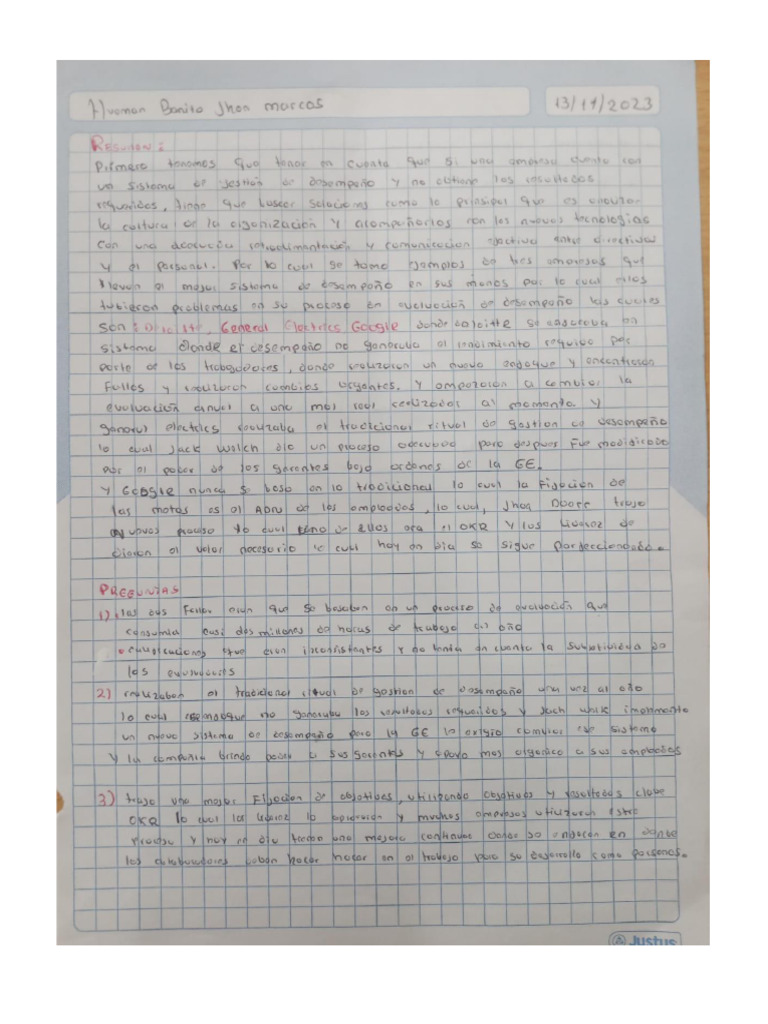 Huaman Bonito Jhon marcos
13/11/2023
RESUMEN:
Primero tenemos que tener en cuenta que si una empresa cuenta con
un sistema de gestión de desempeño y no obtiene los resultados
requeridos, tiene que buscar soluciones como lo principal que es
la cultura de la organización y acompañarlos con los nuevos tecnologias
con una adecuada retroalimentación y comunicacion efectiva entre directivos
y el personal. Por lo cual se tomo ejemplos de tres empresas que
llevan el mejor sistema de desempeño en sus manos por lo cual ellos
tubieron problemas en su proceso en evaluación de desempeño las cuales
son: Deloitte, General Electrics Google donde deloitte se
sistema donde el desempeño no generaba el rendimiento requido por
parte de los trabajadores, donde realizaron un nuevo enfoque y encontraron
Fallos y realizaron cambios urgentes, y empezaron a cambiar la
evaluación anual a una mas real realizados al momento y
general electrics realizaba el tradicional ritual de gestion de desempeño
lo cual Jack Welch dio un proceso adecuado para despues fue modificado
por el poder de los gerentes bajo ordenes de la GE.
Y GOOGLE nunca se baso en lo tradicional lo cual la Fijación de
las metas es el ADN de los empleados, lo cual, Jhon Doerr trajo
nuevos proceso lo cual uno de ellos era el OKR y los de
dieron el valor necesario lo cual hoy en dia se sigue perfeccionando.
PREGUNTAS
1) las que se basaban en un proceso de evaluación que
consumia casi dos millones de horas de trabajo al año
• evaluaciones que eran inconsistentes y de tenia en cuenta la subjetividad de
los evaluadores
2) realizaban el tradicional ritual de gestion de desempeño una vez al año
lo cual no generaba los resultados requeridos y Jach
un nuevo sistema de desempeño para la GE lo exigio cambiar ese sistema
y la compañia brindo poder a sus gerentes y apoyo mas organico a sus empleados
3) trajo una mejor Fijacion de objetivos, utilizando objetivos y resultados clave
OKR lo cual los lo y muchos empresas utilizaron este
proceso y hoy en dia tienen una mejora continua donde se enfocan en donde
los colaboradores deben hacer hacer en el trabajo para su desarrollo como personas.
Justus